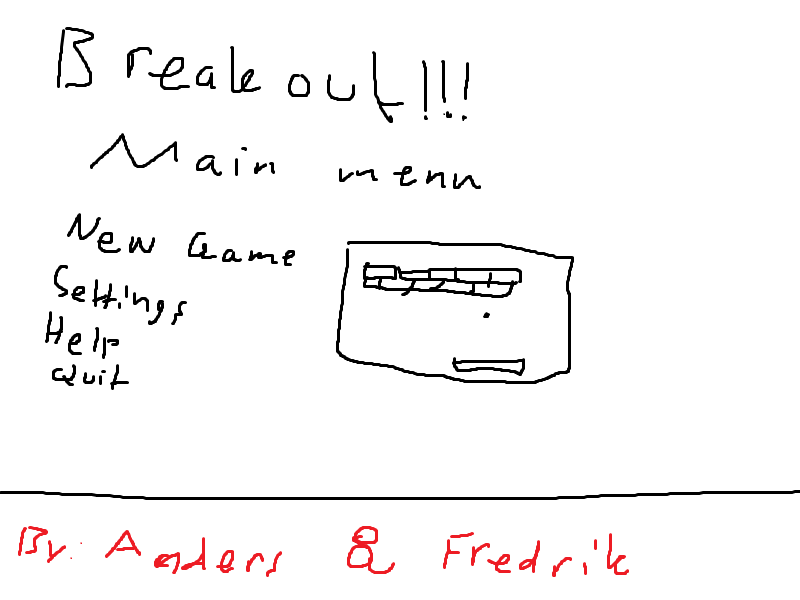 Breakout!!!
Main menu
New Game
Settings
Help
Quit
By: Anders & Fredrik